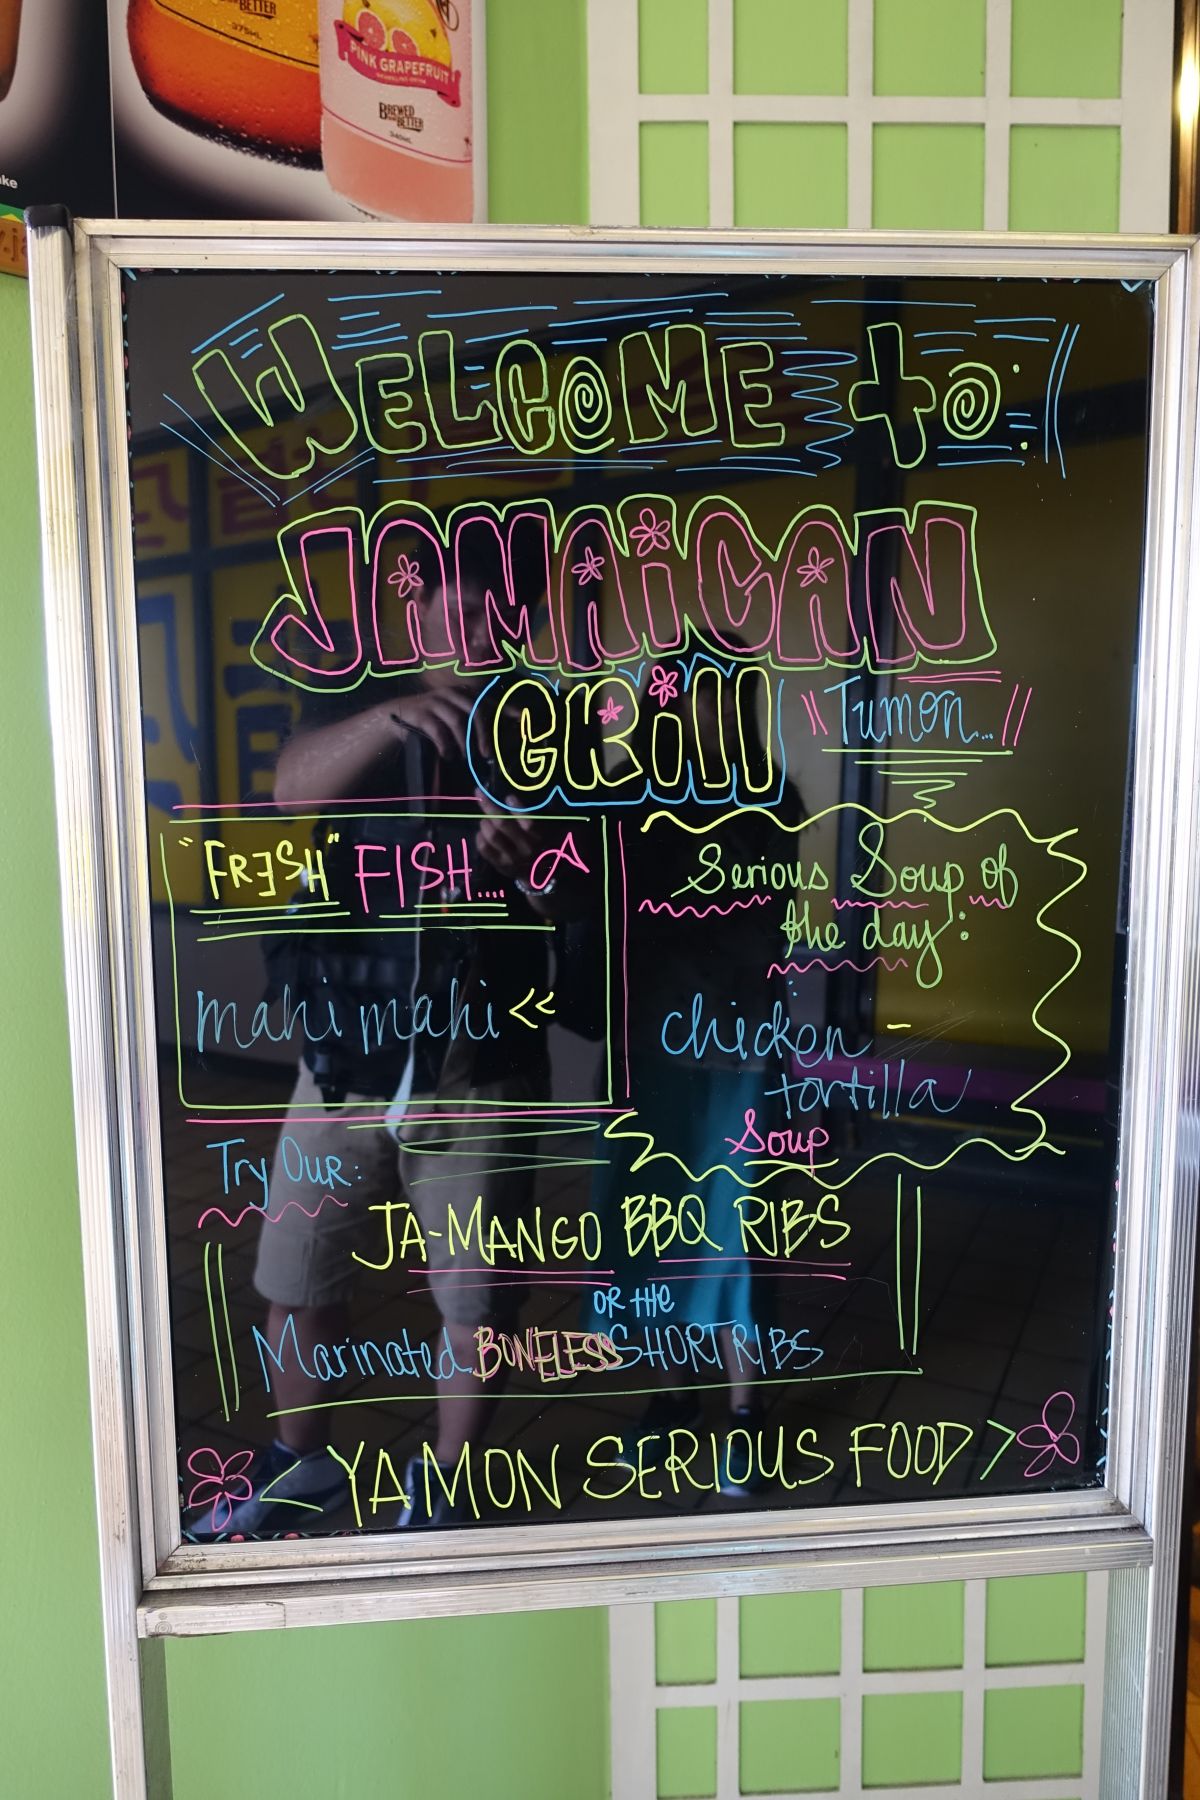 BREWED
BETTER
375ML
PINK GRAPEFRUIT
BREWED
BETTER
340ML
ke
WELCOME to:
JAMAICAN
GRill
Tumon...
"FRESH" FISH....
mahi mahi <<
Serious Soup of
the day:
chicken -
tortilla
Soup
Try OUR:
JA-MANGO BBQ RIBS
OR tHe
Marinated BONELESS SHORT RIBS
< YA MON SERIOUS FOOD >